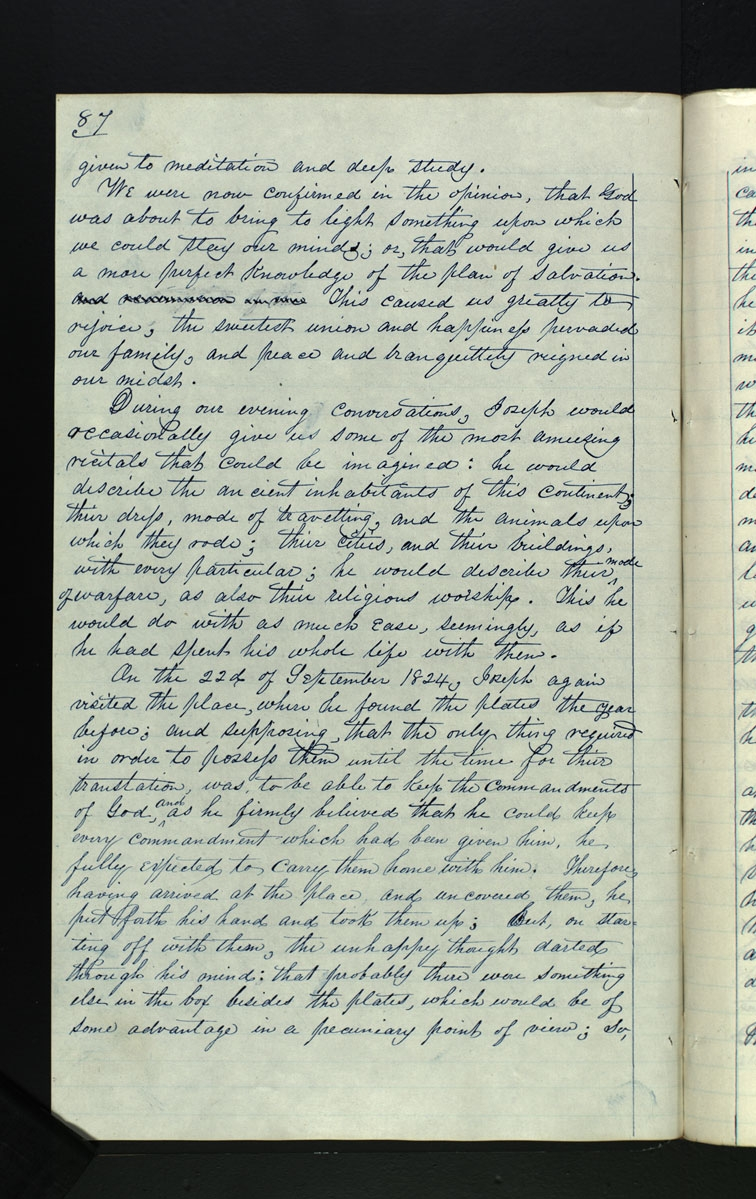 87
given to meditation and deep study.
We were now confirmed in the opinion, that God
was about to bring to light something upon which
we could stay our minds; or, that would give us
a more perfect Knowledge of the plan of salvation.
and This caused us greatly to
rejoice; the sweetest union and happiness pervaded
our family, and peace and tranquillity reigned in
our midst.
During our evening conversations, Joseph would
occasionally give us some of the most amusing
recitals that could be imagined: he would
describe the ancient inhabitants of this continent;
their dress, mode of travelling, and the animals upon
which they rode; their cities, and their buildings,
with every particular; he would describe their mode
of warfare, as also their religious worship. This he
would do with as much ease, seemingly, as if
he had spent his whole life with them.
On the 22d of September 1824, Joseph again
visited the place, where he found the plates the year
before; and supposing, that the only thing required
in order to possess them until the time for their
translation, was, to be able to keep the commandments
of God, and as he firmly believed that he could keep
every commandment which had been given him, he
fully expected to carry them home with him. Therefore,
having arrived at the place, and uncovered them, he,
put forth his hand and took them up; But, on star-
ting off with them, the unhappy thought darted
through his mind: that probably there were something
else in the box besides the plates, which would be of
some advantage in a pecuniary point of view; So,